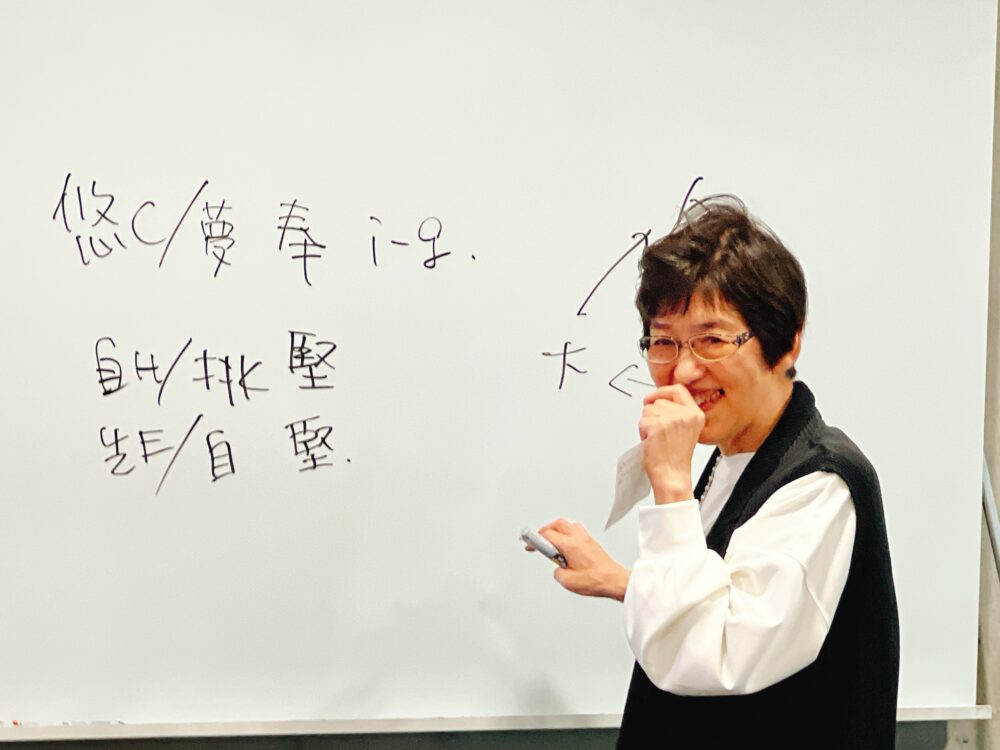 悠C/夢 奉 i-g.
自H/挑 堅
生E/自 堅.
大